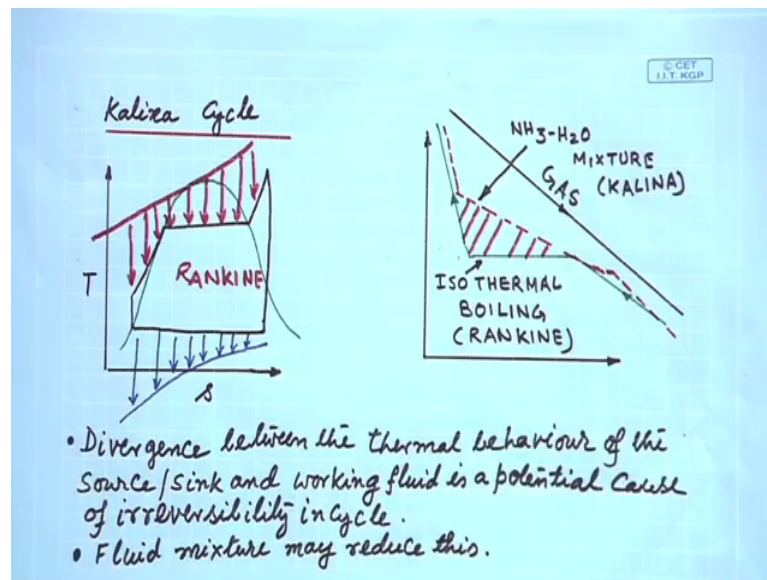 © CET
I.I.T. KGP
Kalina Cycle
T
RANKINE
s
NH3-H2O
MIXTURE
(KALINA)
GAS
ISOTHERMAL
BOILING
(RANKINE)
• Divergence between the thermal behaviour of the
Source/Sink and working fluid is a potential Cause
of irreversibility in cycle.
• Fluid mixture may reduce this.